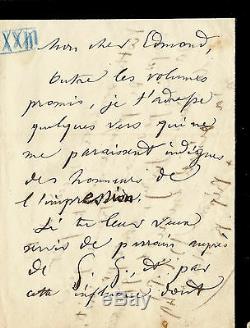 XXIII
Mon cher Edmond,
Outre les volumes
promis, je t'adresse
quelques vers qui ne
me paraissent indignes
des honneurs de
l'impression.
Si tu leur veux
servir de parrain auprès
de G. G, et par
cette influence dont